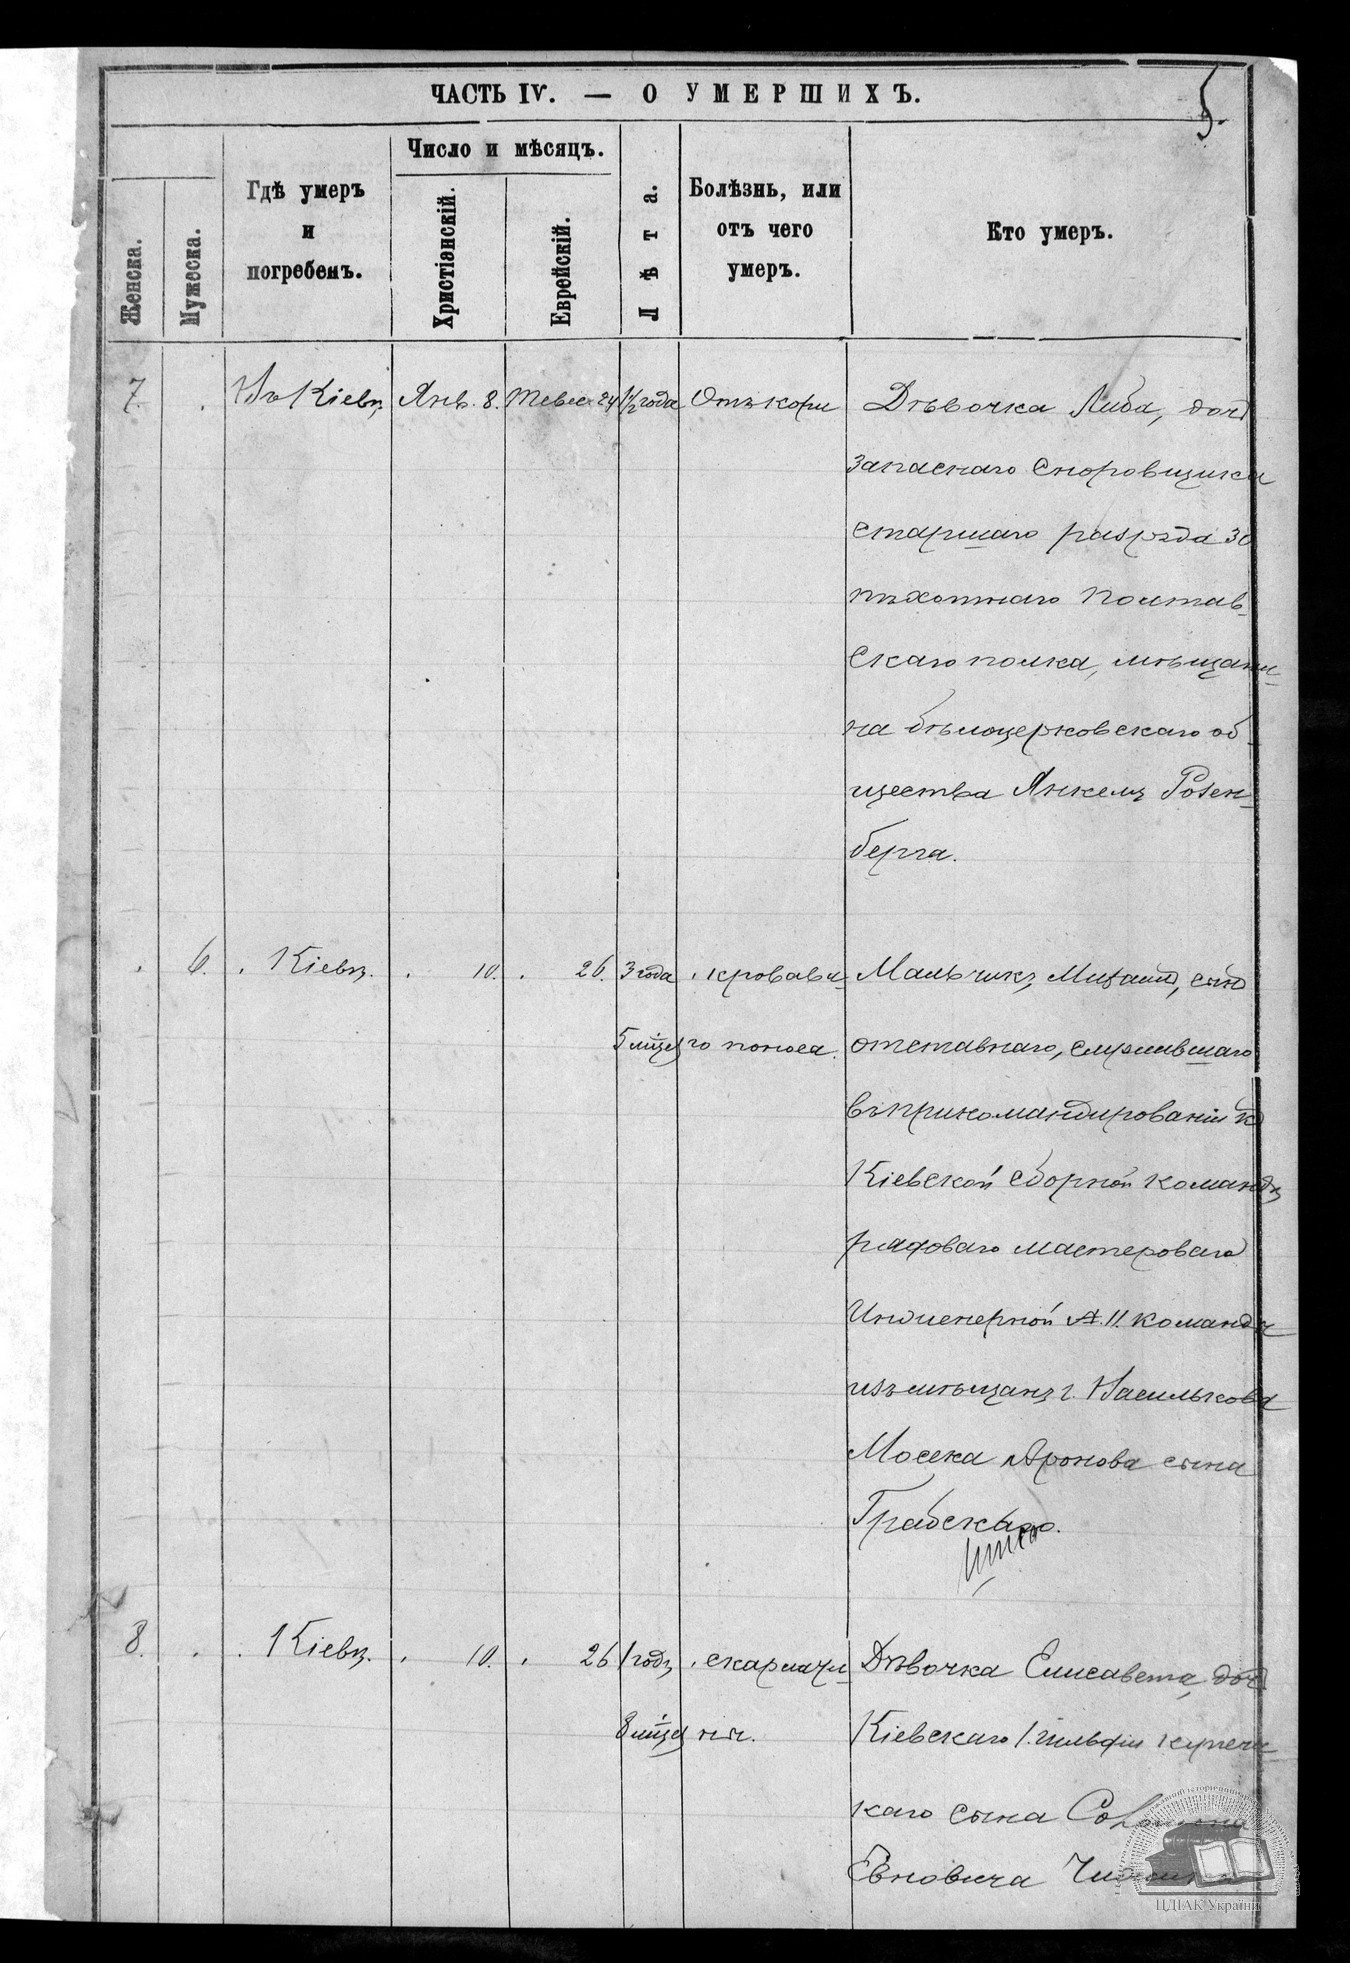 5.
ЧАСТЬ IV. — О УМЕРШИХЪ.
Женска.
Мужеска.
Гдѣ умеръ
и
погребенъ.
Число и мѣсяцъ.
Христіанскій.
Еврейскій.
Лѣта.
Болѣзнь, или
отъ чего
умеръ.
Кто умеръ.
7. Въ Кіевѣ Янв. 8. Тевес 24 1½ года Отъ кори Дѣвочка Либа, дочь
запаснаго
старшаго разряда 30
пѣхотнаго Полтав-
скаго полка, мѣщани-
на бѣлоцерковскаго об-
щества Янкеля Розен-
берга.
6. Кіевѣ. 10. 26. 3 года кровава- Мальчикъ, сынъ
5 мѣсяц го поноса. отставнаго, служившаго
въ прикомандированіи къ
Кіевской сборной командѣ
рядоваго мастероваго
Инженерной А. II. команды
изъ мѣщанъ г. Василькова
Мосека Аронова сына
Грабскаго.
8. Кіевѣ. 10. 26 1 годъ скарлати- Дѣвочка Елисавета, дочь
8 мѣсяц ны. Кіевскаго 1. гильдіи купече-
каго сына Соломона
Евновича
ЦДІАК України